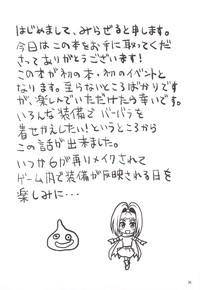 はじめまして、みらぜると申します。
今日はこの本をお手に取ってくだ
さってありがとうございます!
この本が初の本・初のイベントと
なります。至らないところばかりです
が、楽しんでいただけたら幸いです。
いろんな装備でバーバラを
着せかえしたい!というところから
この話が出来ました。
いつか6が再リメイクされて
ゲーム内で装備が反映される日を
楽しみに・・・